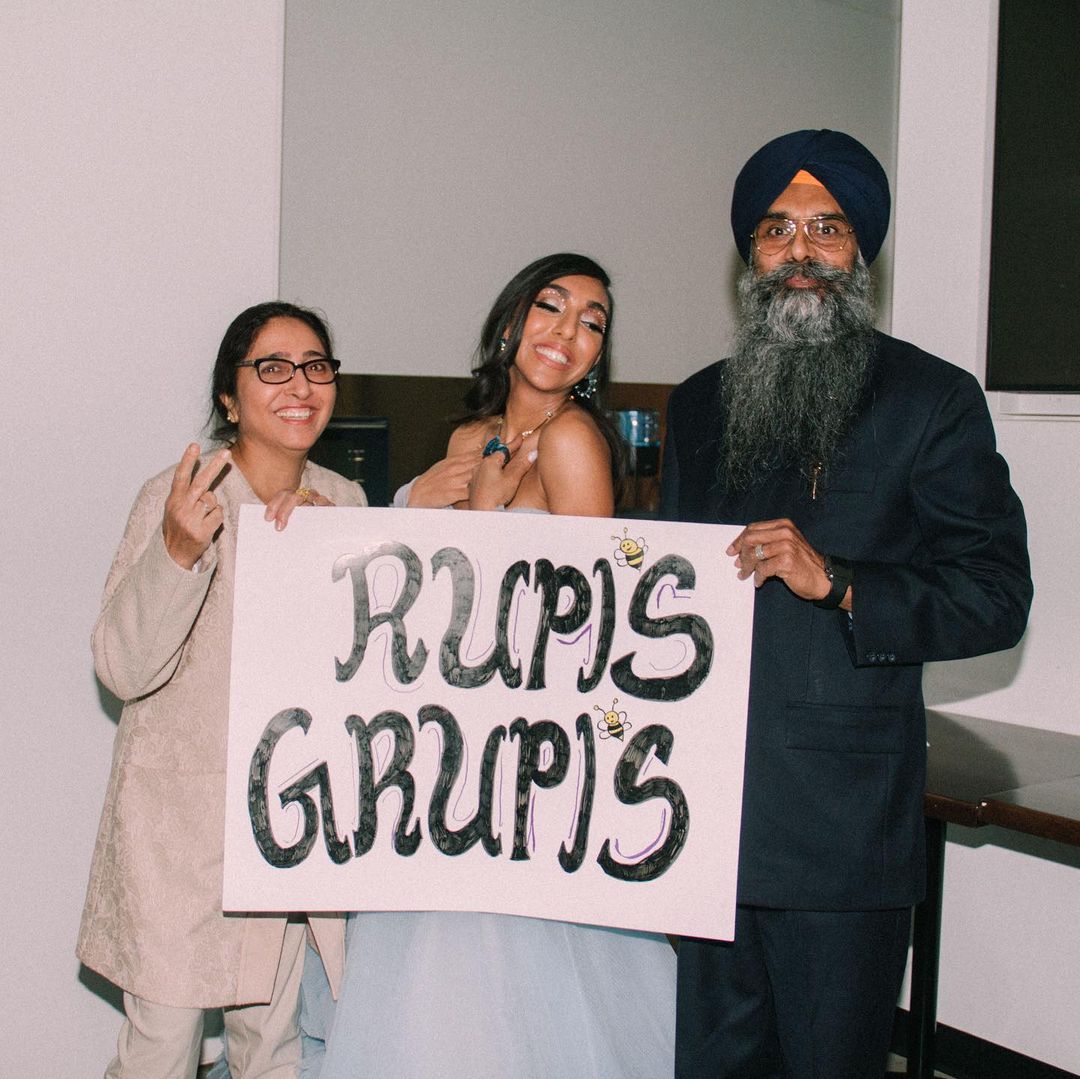 RUPIS
GRUPIS